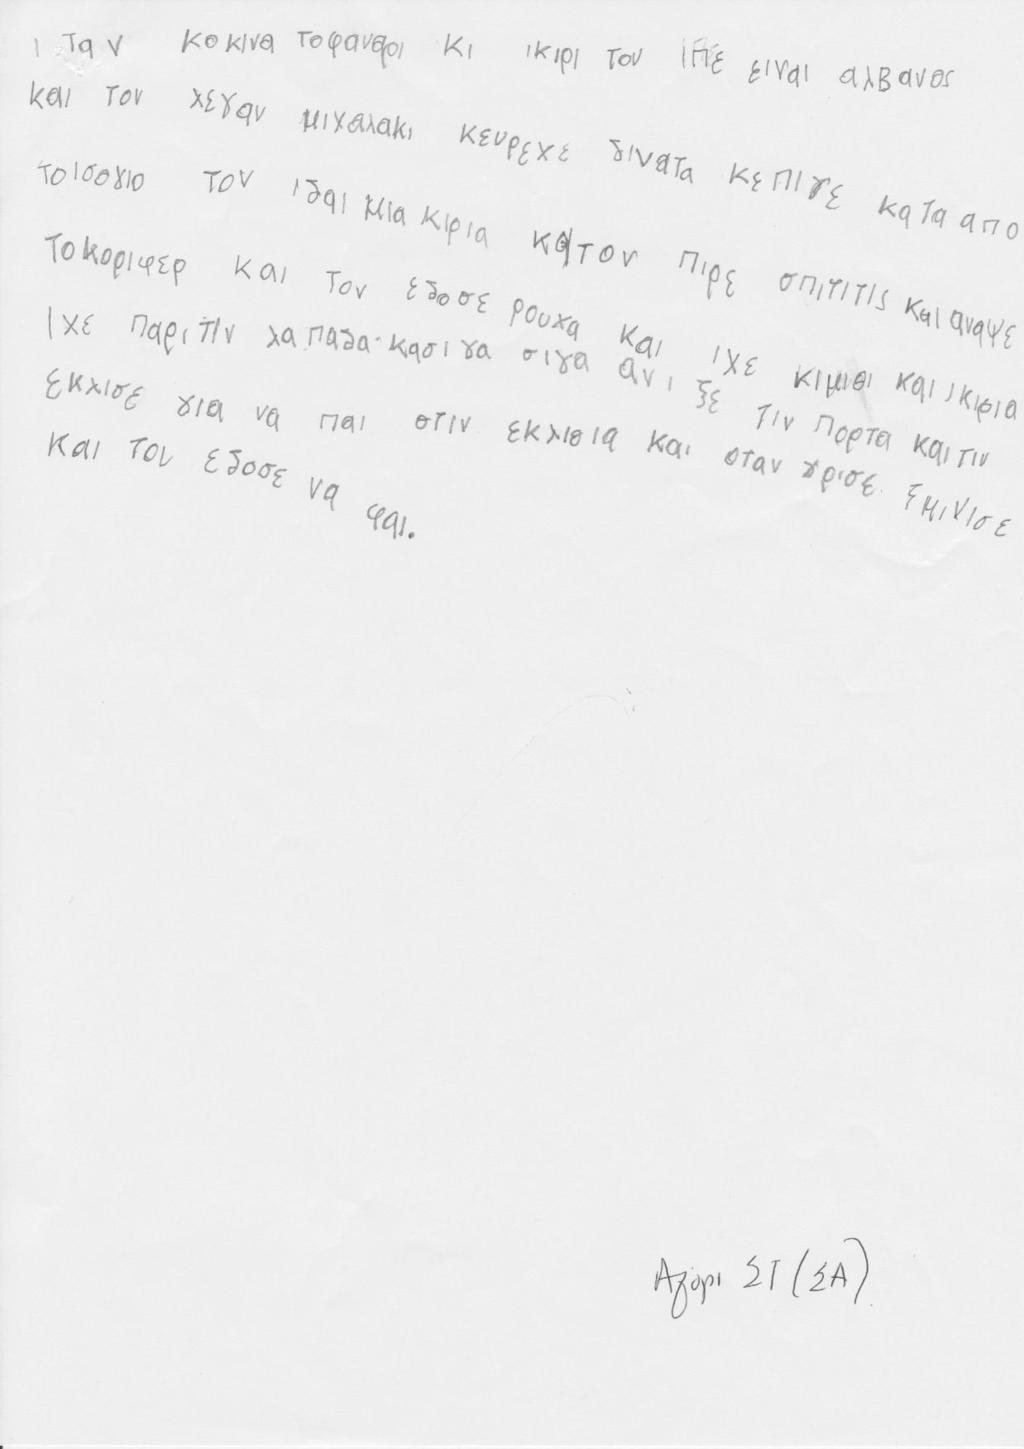 ι ταν κοκινα τοφαναρι κι ικιρι τον ιπε ειναι αλβανος
και τον λεγαν μιχαλακι κευρεχε δινατα κε πιγε κατα απο
το ισογιο τον ιδαι μια κιρια κατον πιρε σπιτιτις και αναψε
το κοριφερ και τον εδοσε ρουχα και ιχε κιμιθι και ικιρια
ιχε παρι τιν λαπαδα κασιγα σιγα ανι ξε τιν πορτα και τιν
εκλισε για να παι στιν εκλισια και οταν γρισε. ξμινισε
και τον εδοσε να φαι.
Αγόρι ΣΤ (ΣΑ)